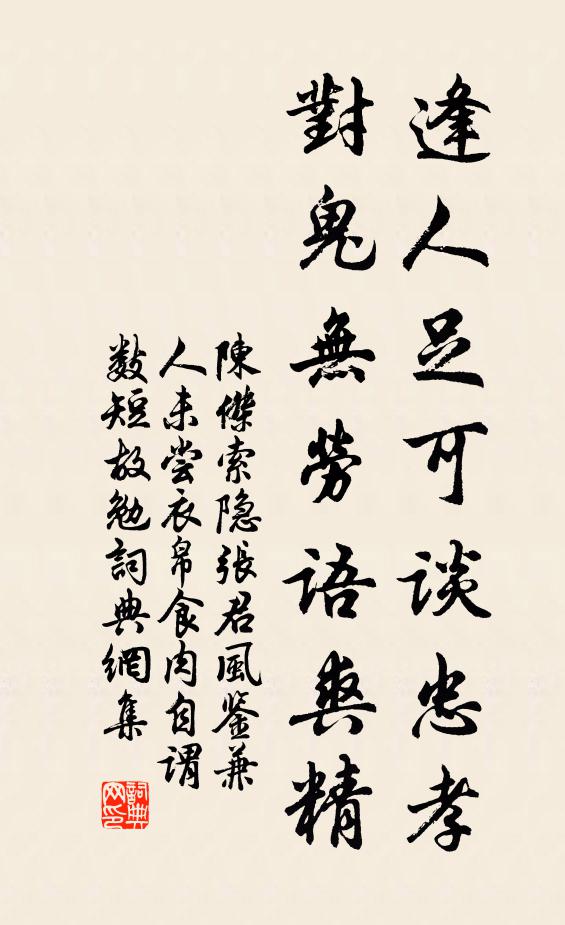 逢人足可談忠孝
對鬼無勞語爽精
陳傑索隐張君風鉴兼
人未嘗衣帛食肉自謂
数短故勉詞典網集
詞典
网印